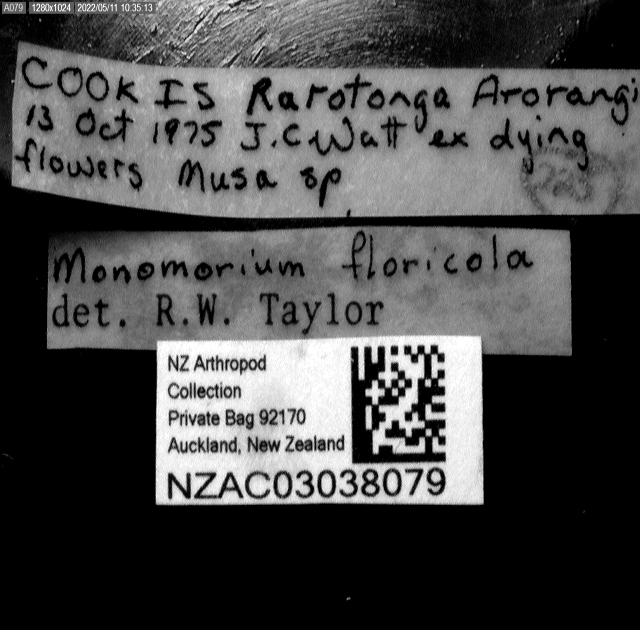 A079 1280x1024 2022/05/11 10:35:13
COOK IS Rarotonga Arorangi
13 Oct 1975 J.C.Watt ex dying
flowers Musa sp
Monomorium floricola
det. R.W. Taylor
NZ Arthropod
Collection
Private Bag 92170
Auckland, New Zealand
NZAC03038079